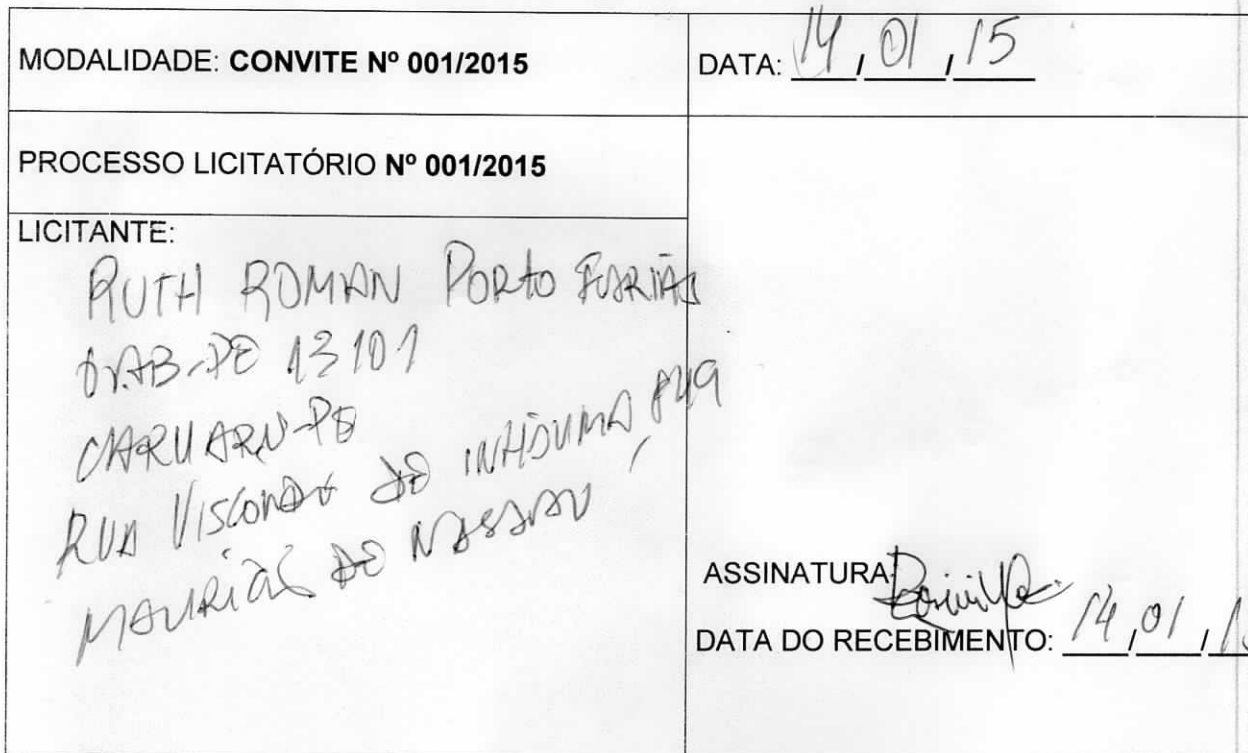 MODALIDADE: CONVITE Nº 001/2015
DATA: 14/01/15
PROCESSO LICITATÓRIO Nº 001/2015
LICITANTE:
RUTH ROMAN PORTO FARIAS
OAB-PE 13101
CARUARU-PE
RUA VISCONDE DE INHAUMA, 849
MAURICIO DE NASSAU
ASSINATURA
DATA DO RECEBIMENTO: 14/01/1